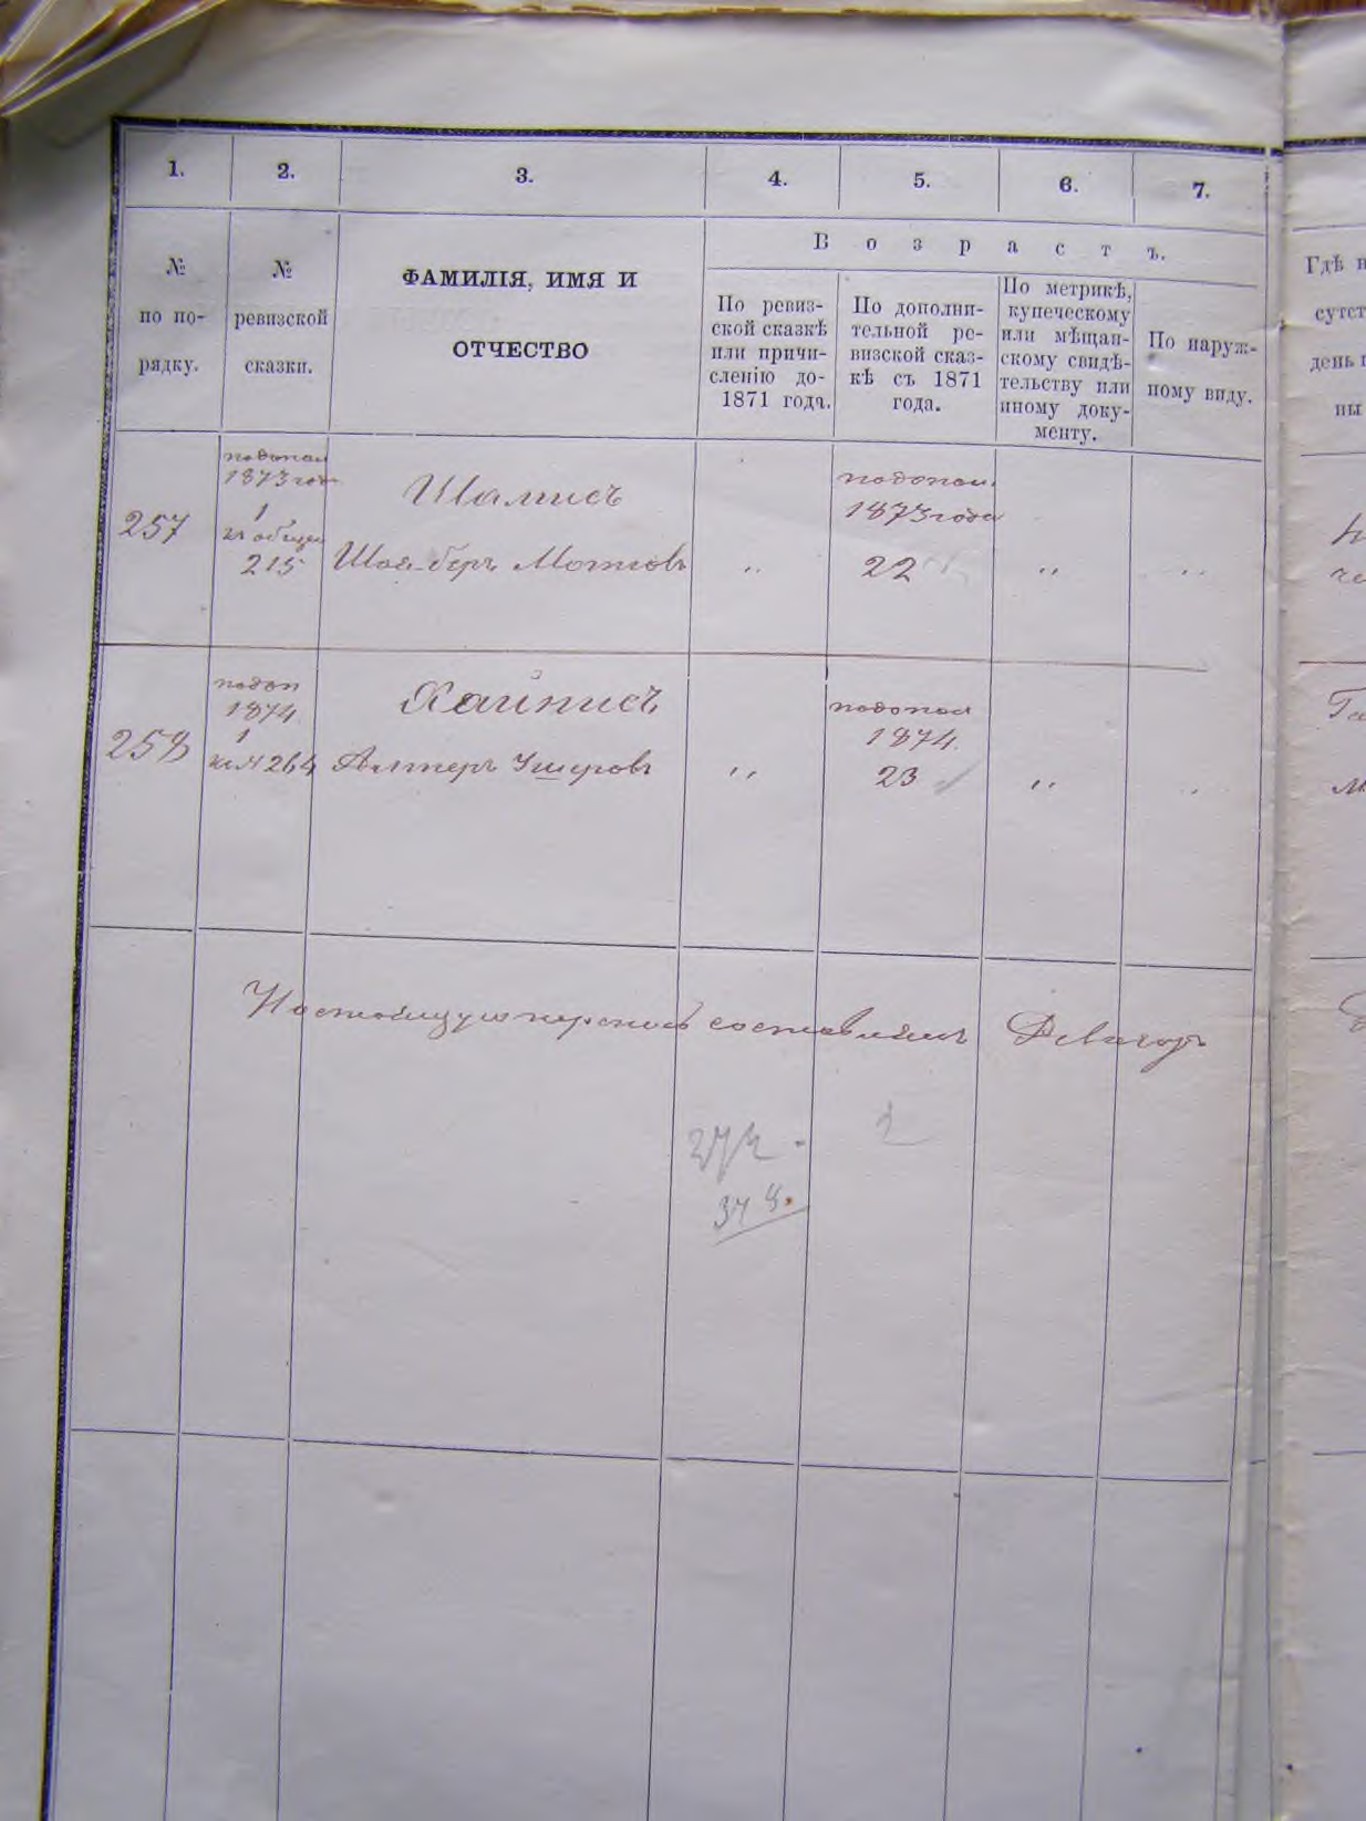 1. 2. 3. 4. 5. 6. 7.
№ по по-рядку.
№ ревизской сказки.
ФАМИЛІЯ, ИМЯ И
ОТЧЕСТВО
Возрастъ.
По ревиз-
ской сказкѣ
или причи-
сленію до-
1871 года.
По дополни-
тельной ре-
визской сказ-
кѣ съ 1871
года.
По метрикѣ,
купеческому
или мѣщан-
скому свидѣ-
тельству или
иному доку-
менту.
По наруж-
ному виду.
Гдѣ
сутст
день
ны
257
1873
1
215
Шамисъ
Мотковъ
,,
по допол.
1873 года
22
,,
,,
258
по доп
1874
1
264
Хайнисъ
Алтеръ Ушеровъ
,,
по допол
1874.
23
,,
Настоящую перепись составлялъ